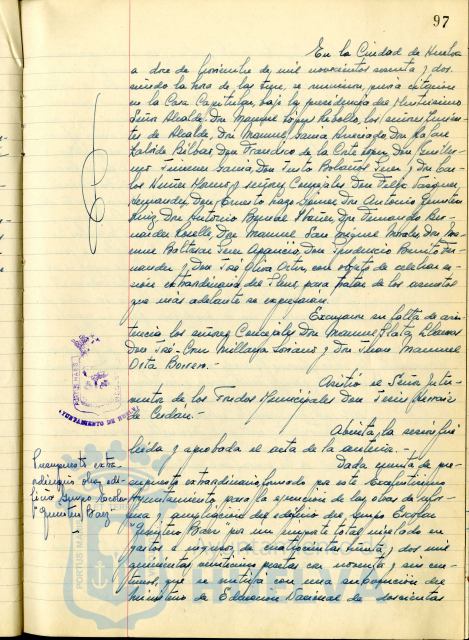 97
En la Ciudad de Huelva
a doce de Noviembre de mil novecientos sesenta y dos
siendo la hora de las se reunieron, previa citación
en la Casa Capitular, bajo la presidencia del Ilustrísimo
Señor Alcalde Don Manuel López Rebollo, los señores Tenien-
tes de Alcalde, Don Manuel García Don Rafael
Don Francisco de la Corte López, Don Guiller-
mo Jimenez García, Don Justo Bolaños Don Car-
los y señores Concejales Don Felix Vazquez
Hernandez Don Ernesto Lazo Don Antonio
Ruiz, Don Antonio Don Fernando Her-
nandez Don Manuel San Miguel Don
Baltasar Aparicio, Don Prudencio Benito Fer-
nandez y Don José Oliva con objeto de celebrar se-
sión extraordinaria del Pleno para tratar de los asuntos
que más adelante se expresarán.
Excusaron su falta de asis-
tencia los señores Concejales Don Manuel Plata
Don José-Cruz Millaya Soriano y Don Juan Manuel
Orta Borrero.
Asistió el Señor Inter-
ventor de los Fondos Municipales Don
de Cerdan.-
Abierta la sesión fué
leida y aprobada el acta de la anterior.-
Presupuesto extra-
ordinario obras edi-
ficio Grupo Escolar
"Quintero Baez"
Dada cuenta de pre-
supuesto extraordinario, formado por este Excelentísimo
Ayuntamiento para la ejecución de las obras de refor-
ma y ampliación del edificio del Grupo Escolar
"Quintero Baez" por un importe total nivelado en
gastos e ingresos de cuatrocientas treinta y dos mil
pesetas con noventa y seis cen-
timos, que se con una subvención del
Ministerio de Educación Nacional de doscientas
AYUNTAMIENTO DE HUELVA
PORTUS MARIS